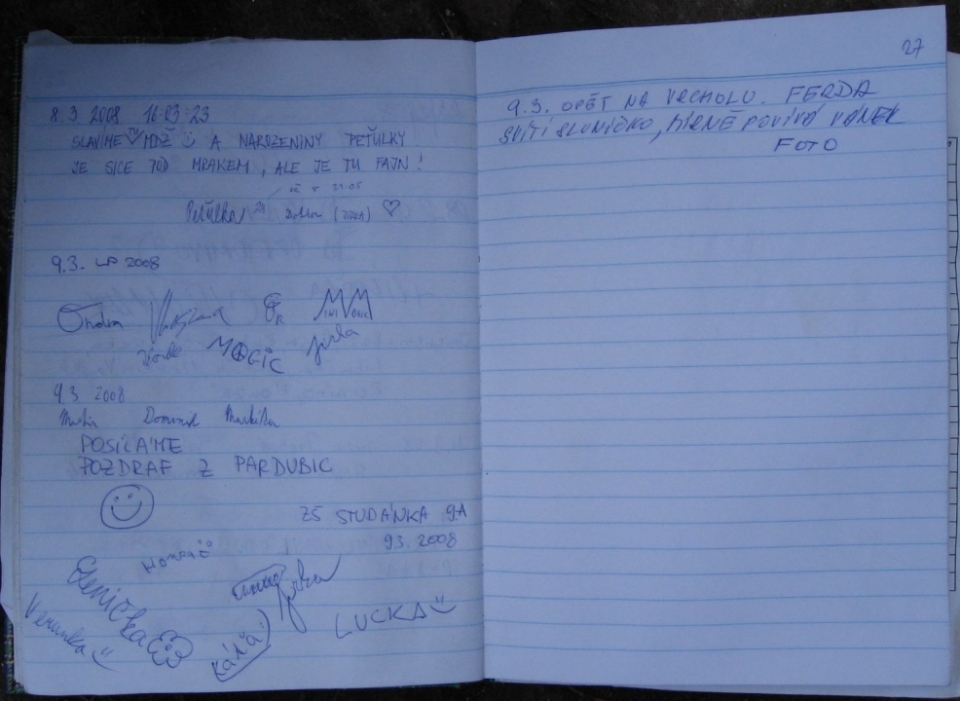 8.3 2008 16:03:23
SLAVÍME MDŽ A NAROZENINY PEŤULKY
JE SICE POD MRAKEM, ALE JE TU FAJN!
Peťulka
9.3. LP 2008
Ondra
MAGIC Jirka
9.3 2008
Dominik Markéta
POSÍLÁME
POZDRAF Z PARDUBIC
ZŠ STUDÁNKA 9A
93.2008
Elenička
Verunka
Káča
Jirka
LUCKA
27
9.3. OPĚT NA VRCHOLU. FERDA
SVÍTÍ SLUNÍČKO, MÍRNĚ POVÍVÁ VÁNEK
FOTO